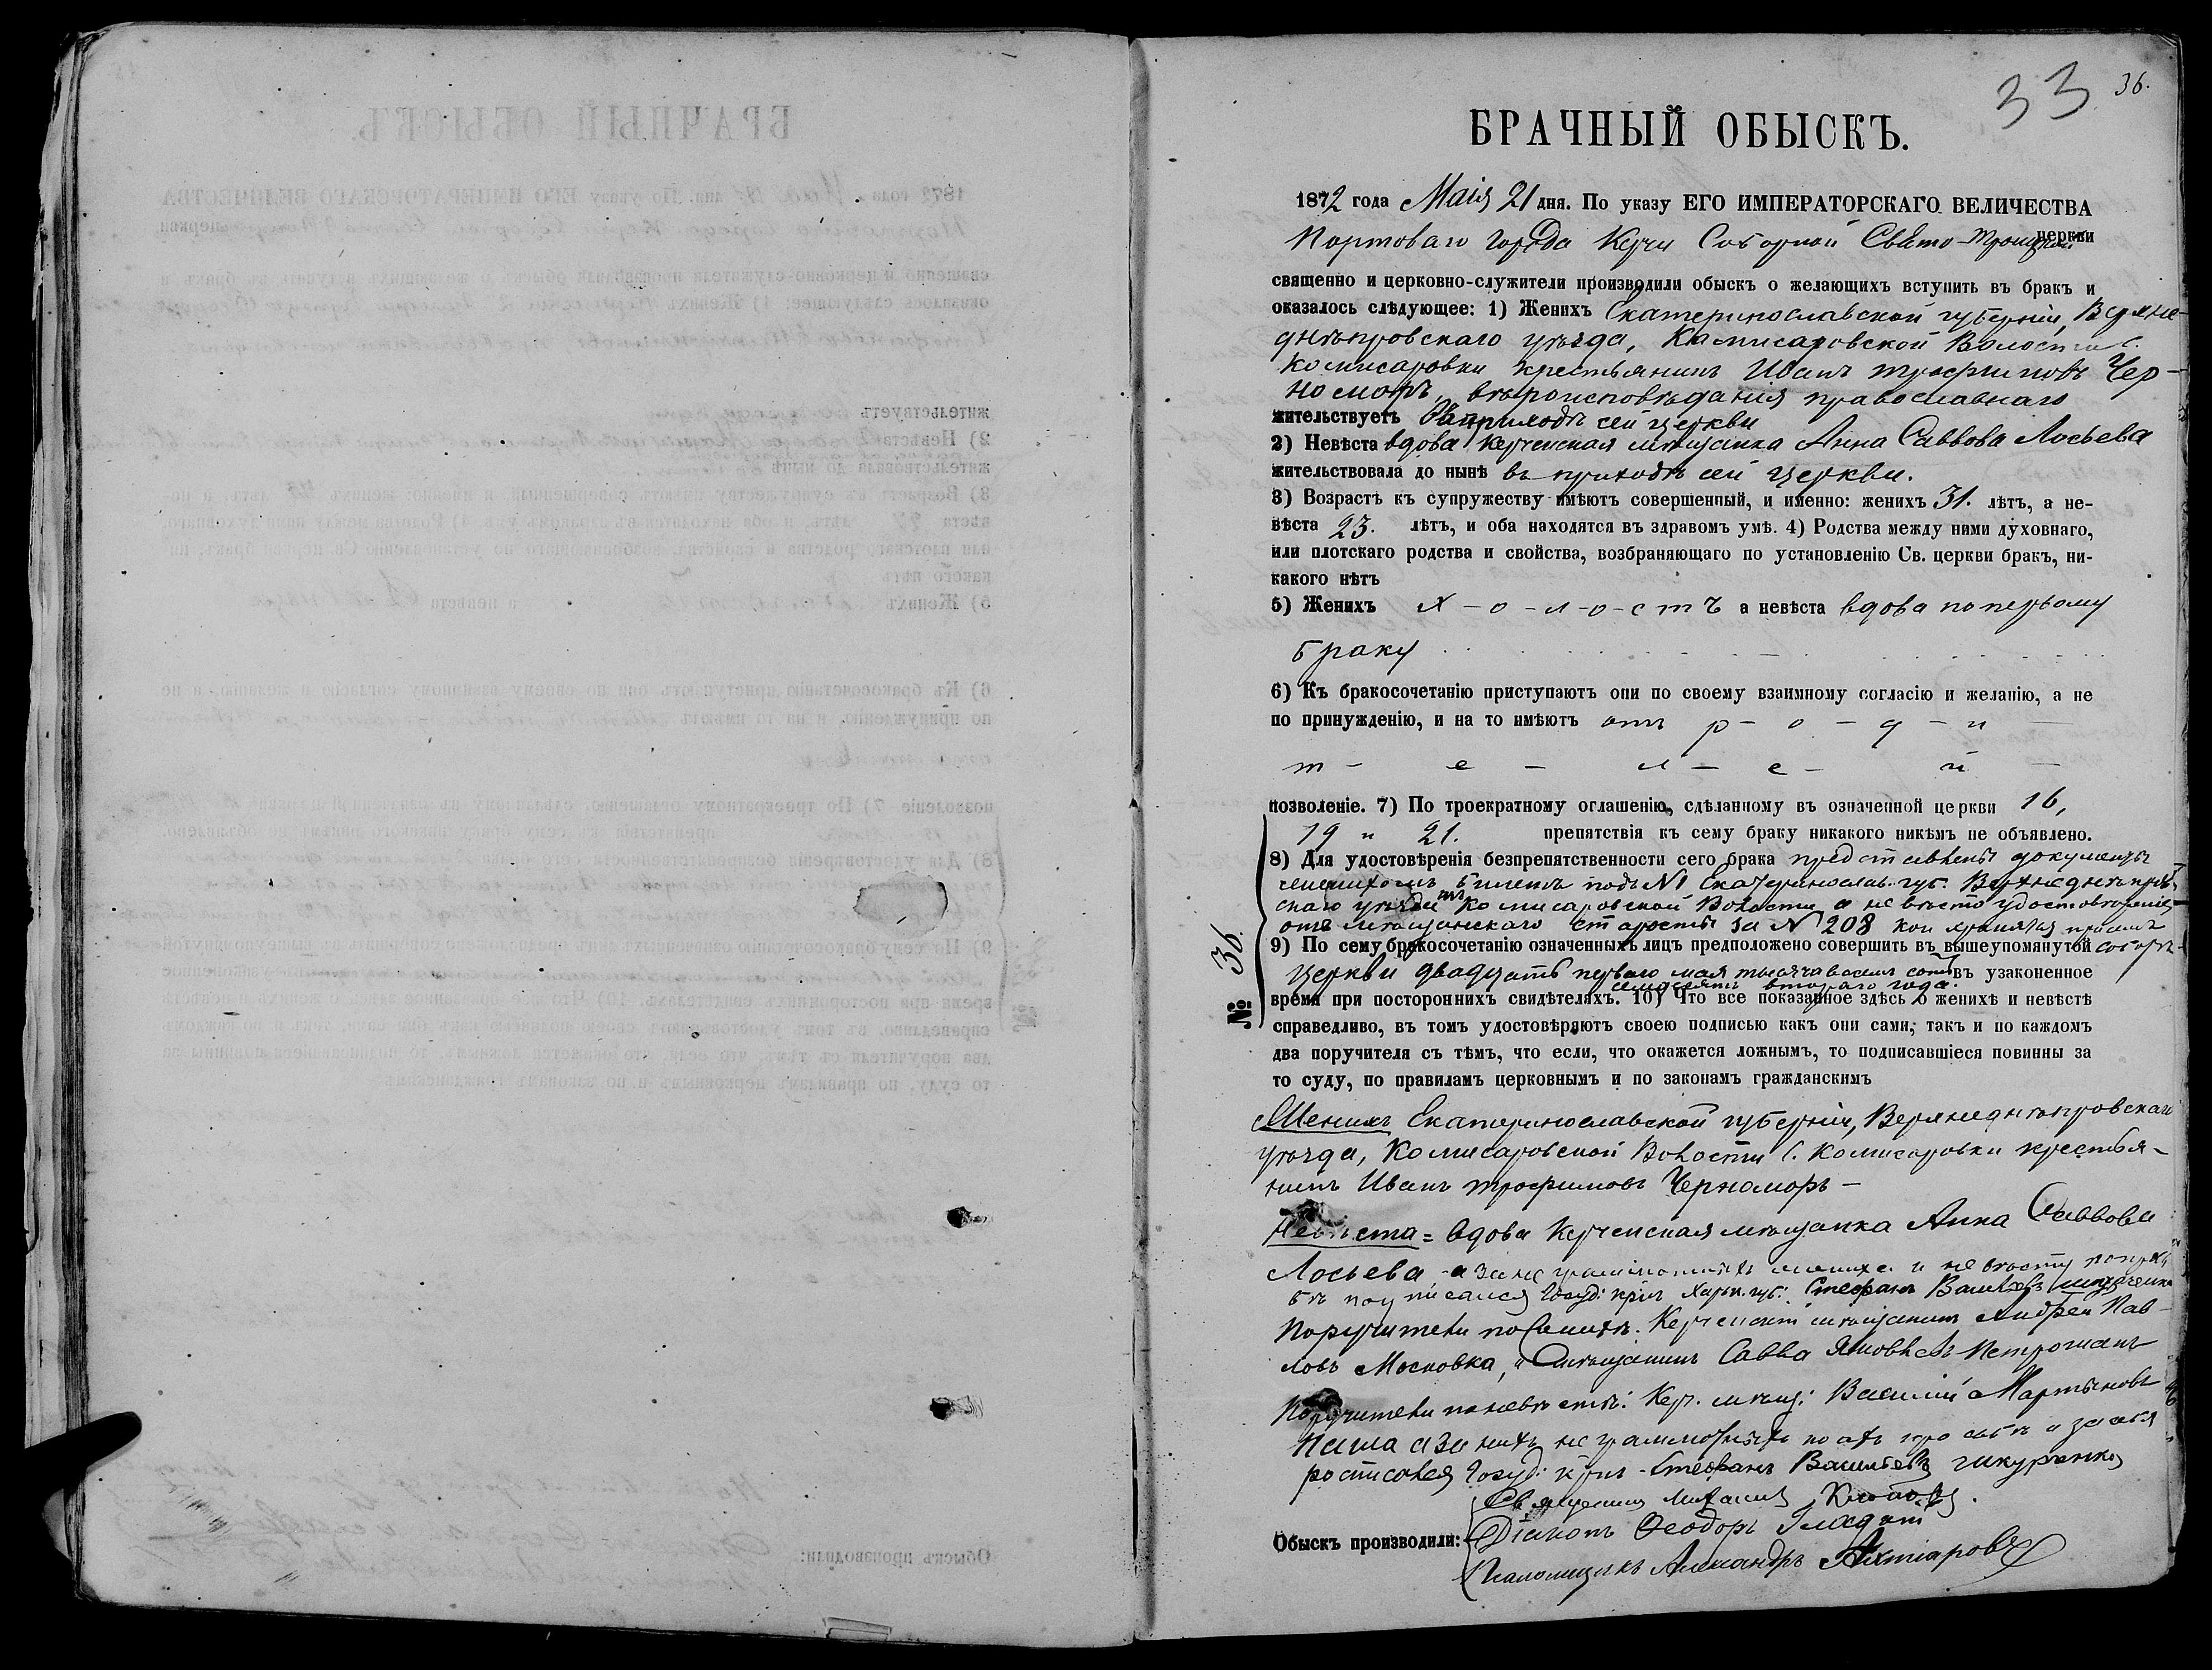 33 36.
БРАЧНЫЙ ОБЫСКЪ.
1872 года Маія 21 дня. По указу ЕГО ИМПЕРАТОРСКАГО ВЕЛИЧЕСТВА
Портоваго города Керчи Соборной Свято-Троицкой церкви
священно и церковно-служители производили обыскъ о желающихъ вступить въ бракъ и
оказалось слѣдующее: 1) Женихъ Екатеринославской губерніи, Верхне-
днѣпровскаго уѣзда, Камисаровской Волости С.
Комисаровки крестьянинъ Иванъ Трофимовъ Чер-
номоръ, вѣроисповѣданія православнаго
жительствуетъ въ приходѣ сей церкви
2) Невѣста вдова Керченская мѣщанка Анна Саввова Лосьева
жительствовала до нынѣ въ приходѣ сей церкви.
3) Возрастъ къ супружеству имѣютъ совершенный, и именно: женихъ 31. лѣтъ, а не-
вѣста 23. лѣтъ, и оба находятся въ здравомъ умѣ. 4) Родства между ними духовнаго,
или плотскаго родства и свойства, возбраняющаго по установленію Св. церкви бракъ, ни-
какого нѣтъ
5) Женихъ х-о-л-о-с т ъ а невѣста вдова по первому
браку
6) Къ бракосочетанію приступаютъ они по своему взаимному согласію и желанію, а не
по принужденію, и на то имѣютъ отъ р - о - д - и -
т - е - л - е - й -
позволеніе. 7) По троекратному оглашенію, сдѣланному въ означенной церкви 16,
19 и 21. препятствія къ сему браку никакого никѣмъ не объявлено.
8) Для удостовѣренія безпрепятственности сего брака представлены документы
женихомъ билетъ подъ №1 Екатеринослав. губ. Верхнеднѣпров-
скаго уѣзда Комисаровской Волости а невѣстою удостовѣреніе
отъ мѣщанскаго старосты за № 208 кои хранятся
9) По сему бракосочетанію означенныхъ лицъ предположено совершить въ вышеупомянутой собор-
церкви двадцать перваго мая тысяча восемь сотъ въ узаконенное
семдесятъ втораго года.
время при постороннихъ свидѣтеляхъ. 10) Что все показанное здѣсь о женихѣ и невѣстѣ
справедливо, въ томъ удостовѣряютъ своею подписью какъ они сами, такъ и по каждомъ
два поручителя съ тѣмъ, что если, что окажется ложнымъ, то подписавшіеся повинны за
то суду, по правиламъ церковнымъ и по законамъ гражданскимъ
№ 36.
Женихъ Екатеринославской губерніи, Верхнеднѣпровскаго
уѣзда, Комисаровской Волости С. Комисаровки крестья-
нинъ Иванъ Трофимовъ Черноморъ -
Невѣста = вдова Керченская мѣщанка Анна Саввова
Лосьева, - а за неграмотныхъ жениха и невѣсту
подписался Госуд: крест Харьк. губ: Стефанъ Васильевъ
Поручители по женихѣ: Керченскій мѣщанинъ Андрей Пав-
ловъ Московка, и мѣщанинъ Савва Яковлевъ
Поручители по невѣстѣ: Кер. мѣщ: Василій Мартыновъ
а за нихъ неграмотныхъ по ихъ прозьбѣ и за себя
росписался Госуд: крест - Стефанъ Васильевъ
Обыскъ производили: Священникъ Михаилъ
Діаконъ Феодоръ
Псаломщикъ Александръ Ахтіаровъ